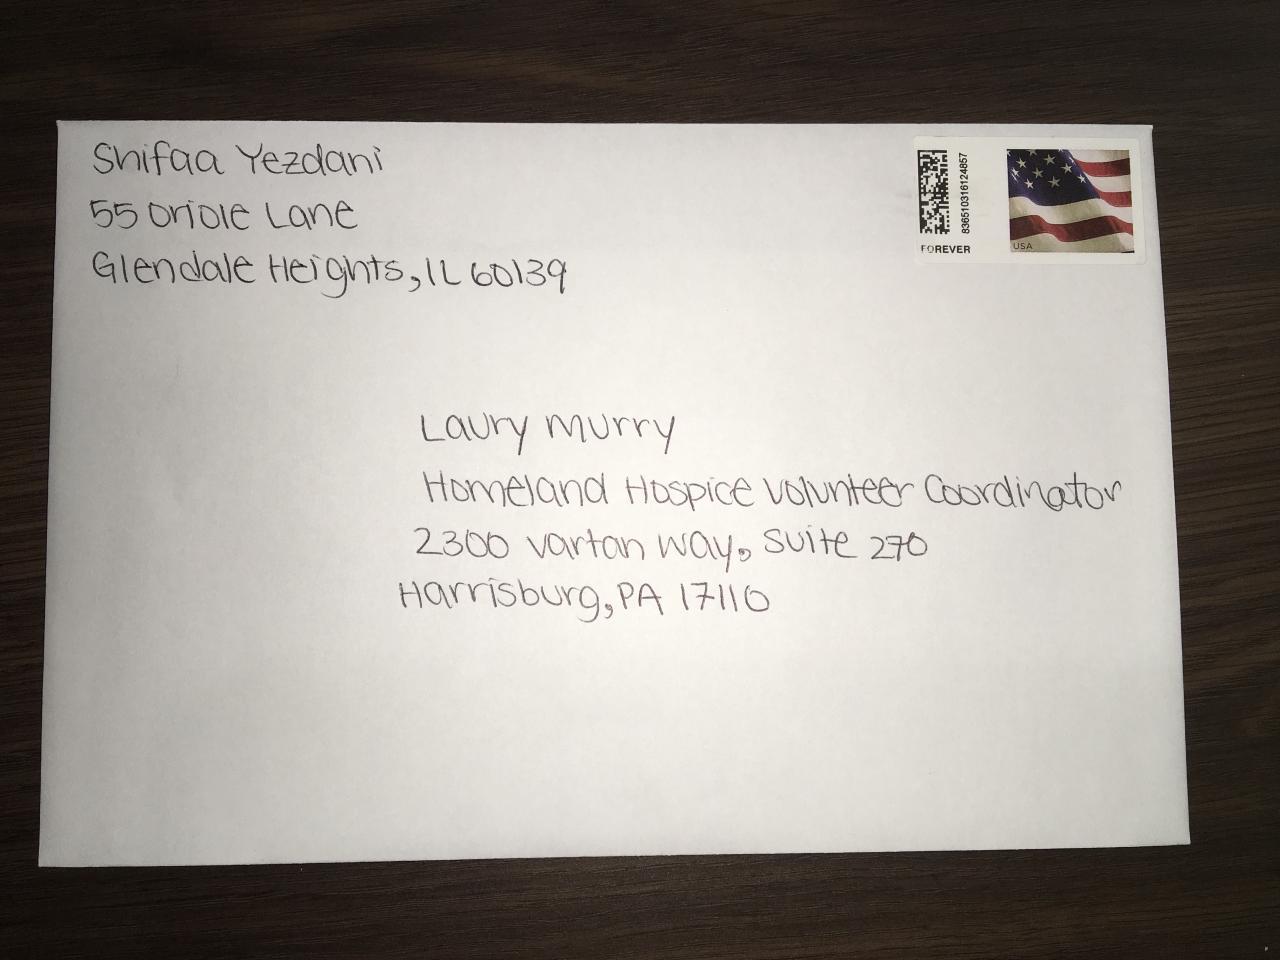 Shifaa Yezdani
55 Oriole Lane
Glendale Heights, IL 60139
836510316124857
FOREVER
USA
Laury Murry
Homeland Hospice Volunteer Coordinator
2300 Vartan Way, Suite 270
Harrisburg, PA 17110